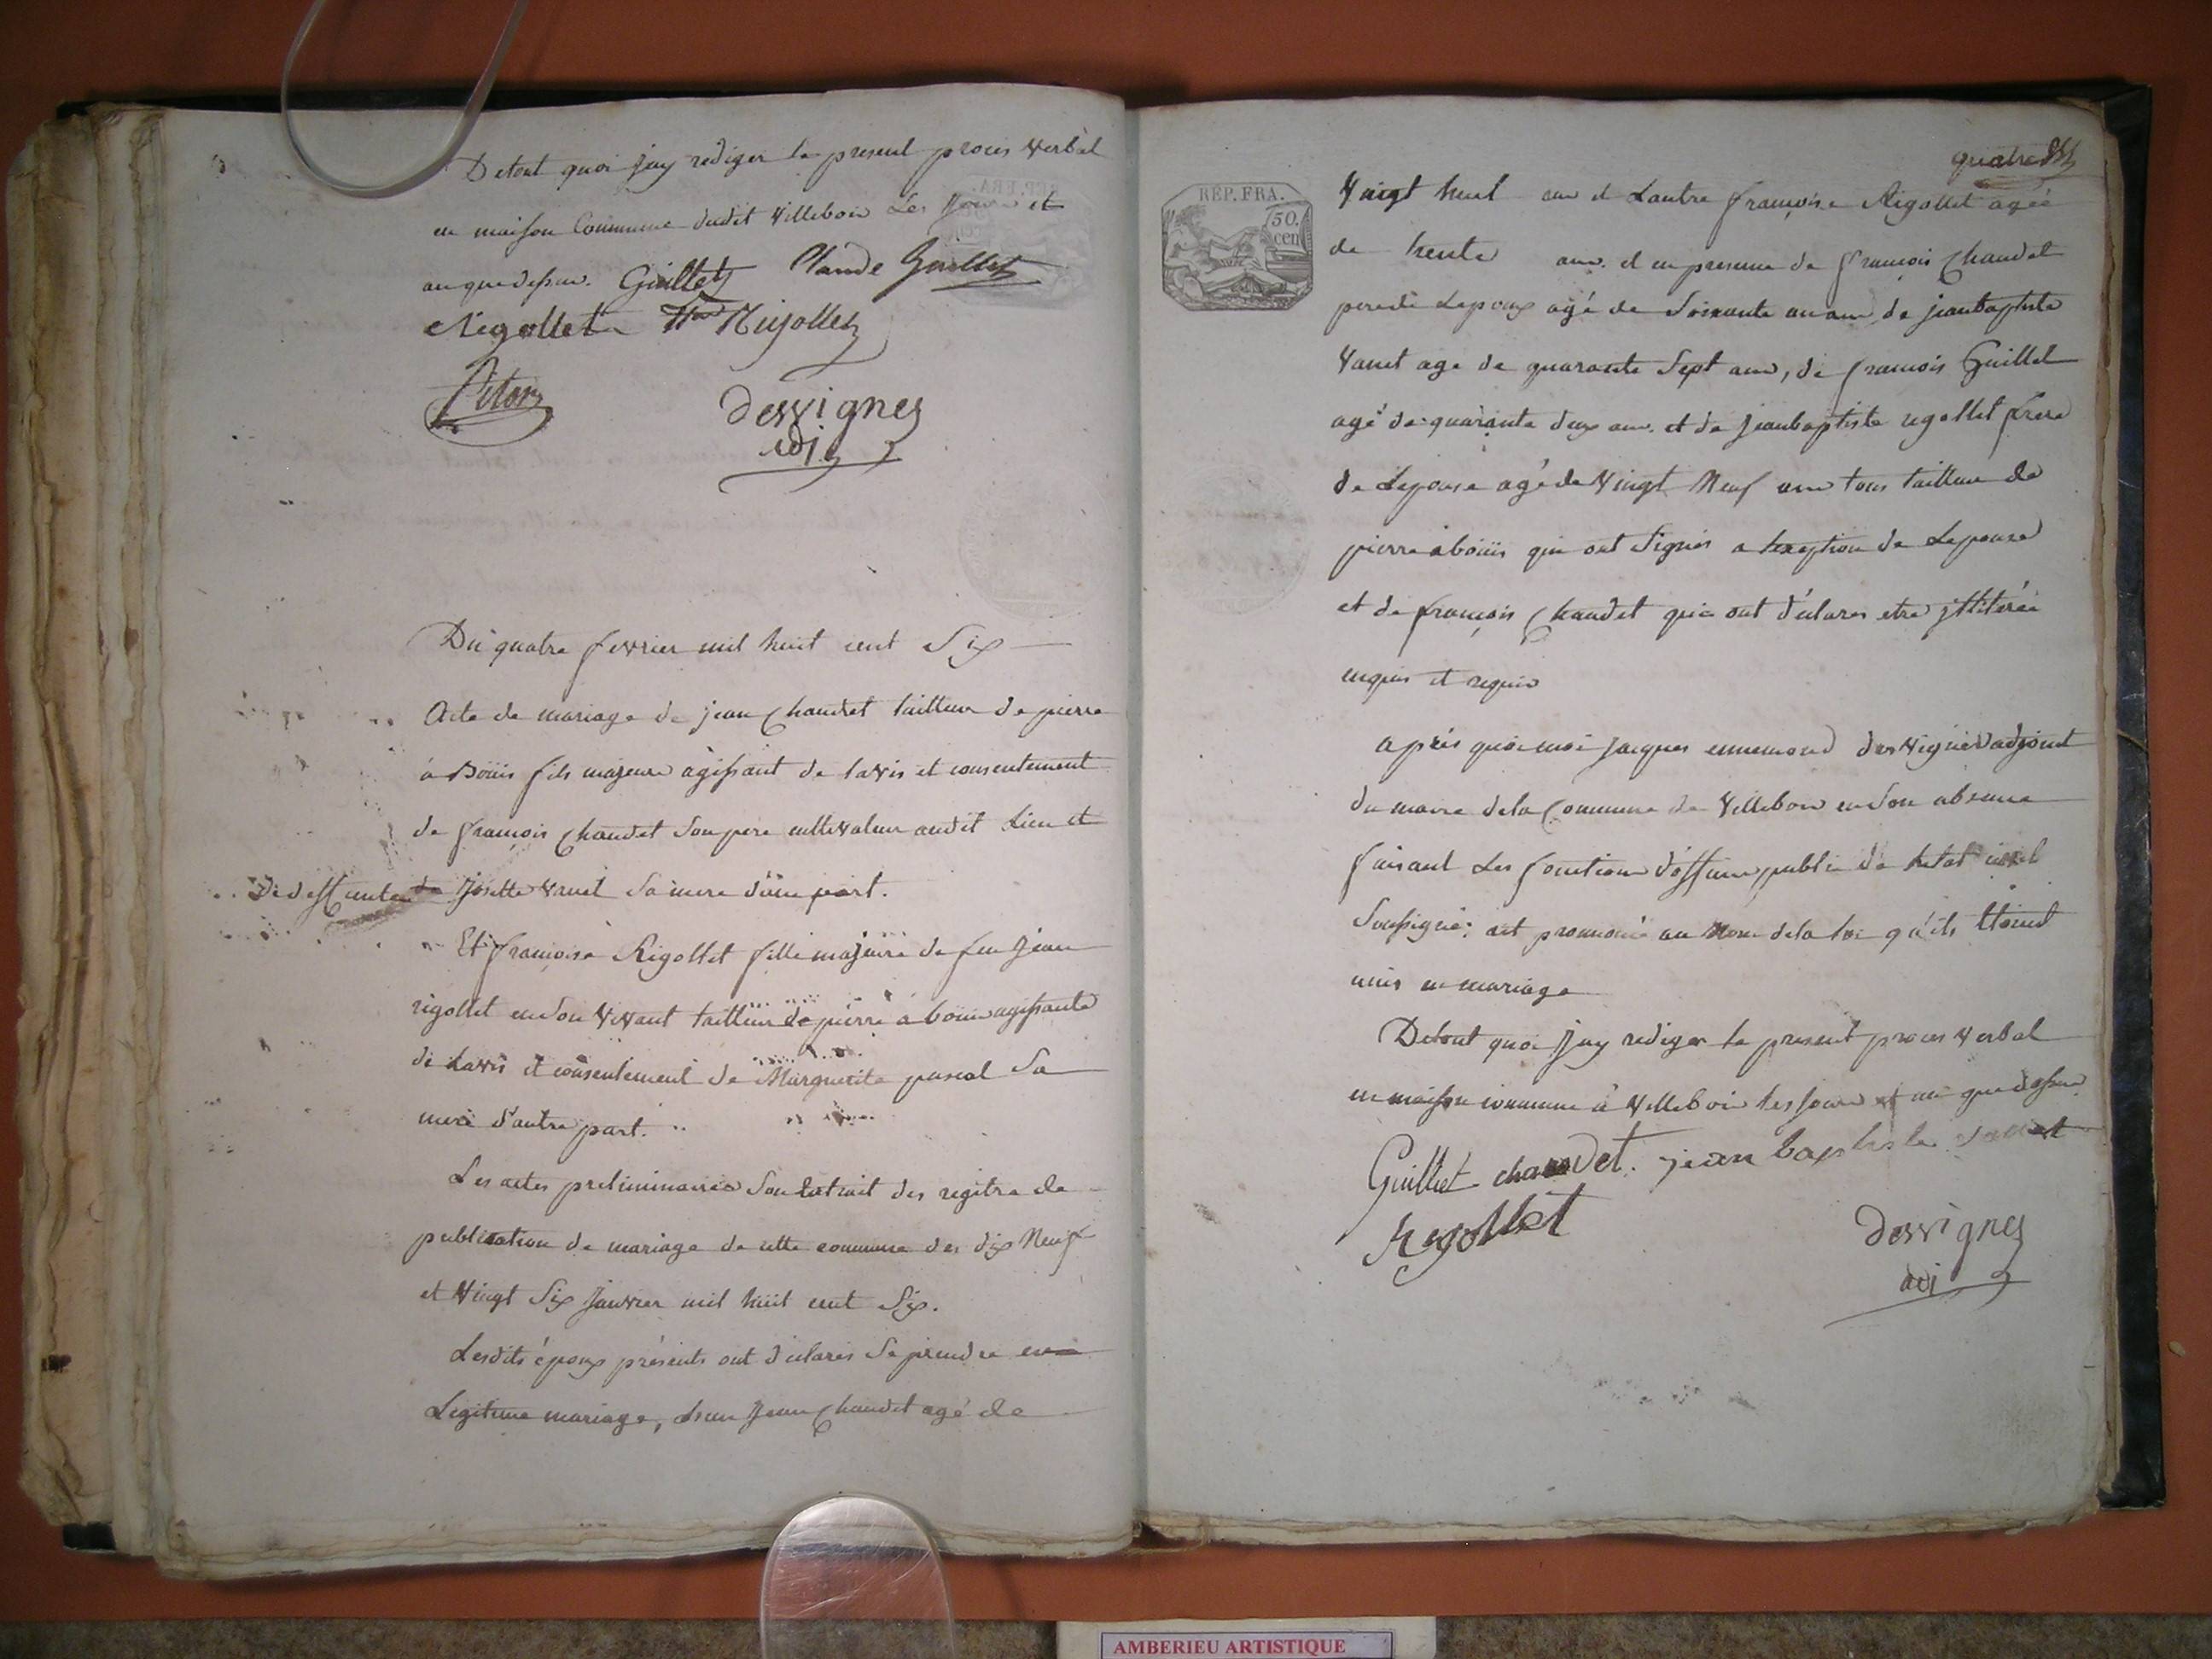 Detout quoi jay rediger le present proces verbal
en maison Commune dudit villebois Les Jour et
an que dessus. Guillet Claude Guillet
Regollet Rigollet
Piton
desvignes
adj
Du quatre fevrier mil huit cent Six
Acte de mariage de jean Chaudet tailleur de pierre
à Bouis fils majeur agissant de lavis et consentement
de françois Chaudet son pere cultivateur audit Lieu et
De deffunte de Josette vanet sa mere d'une part.
Et françoise Rigollet fille majeure de feu Jean
rigollet en son vivant tailleur de pierre à bouis agissante
de Lavis et consentement de Marguerite pascal Sa
mere d'autre part.
Les actes preliminaires Son Extrait des regitre de
publication de mariage de cette commune des dix Neuf
et vingt Six Janvier mil huit cent Six.
Lesdits époux présents ont déclarés Se prendre en
Légitime mariage, Lun Jean Chaudet agé de
quatre
REP. FRA.
50. cen
vingt huit ans et Lautre françoise Rigollet agée
de trente ans. et en presence de françois Chaudet
pere de Lepoux agé de Soixante un ans, de jeanbaptiste
vanet age de quarante Sept ans, de françois Guillet
agé de quarante deux ans. et de Jeanbaptiste rigollet frere
de Lepouse agé de vingt Neuf ans tous tailleur de
pierre à bouis qui ont Signés a lexception de Lepouse
et de françois Chaudet qui ont déclarés etre jllitérée
enquis et requis
après quoi moi Jacques ennemond desvignes adjoint
du maire dela Commune de villebois en Son absence
faisant Les fonctions d'officier public de Letat civil
Soussigné; ait prononcé au Nom dela loi qu'ils Etoient
unis en mariage
Detout quoi Jay rediger le present proces verbal
en maison commune à villebois les jour et an que dessus
Guillet chaudet. jean baptiste vanet
Regollet
desvignes
adj
AMBERIEU ARTISTIQUE